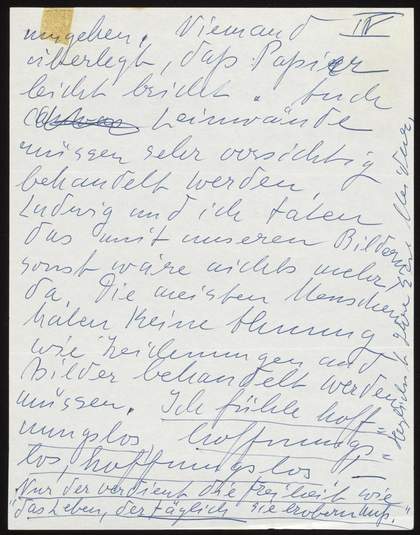 IV
umgehen. Niemand
überlegt, daß Papier
leicht bricht. Auch
Leinwände
müssen sehr vorsichtig
behandelt werden,
Ludwig und ich taten
das mit unseren Bildern
sonst wäre nichts mehr
da. Die meisten Menschen
haben keine Ahnung
wie Zeichnungen und
Bilder behandelt werden
müssen. Ich fühle hoff=
nungslos hoffnungs=
los, hoffnungslos
"Nur der verdient die Freiheit wie
das Leben, der täglich sie erobern muß."
Herzlichst Ihre